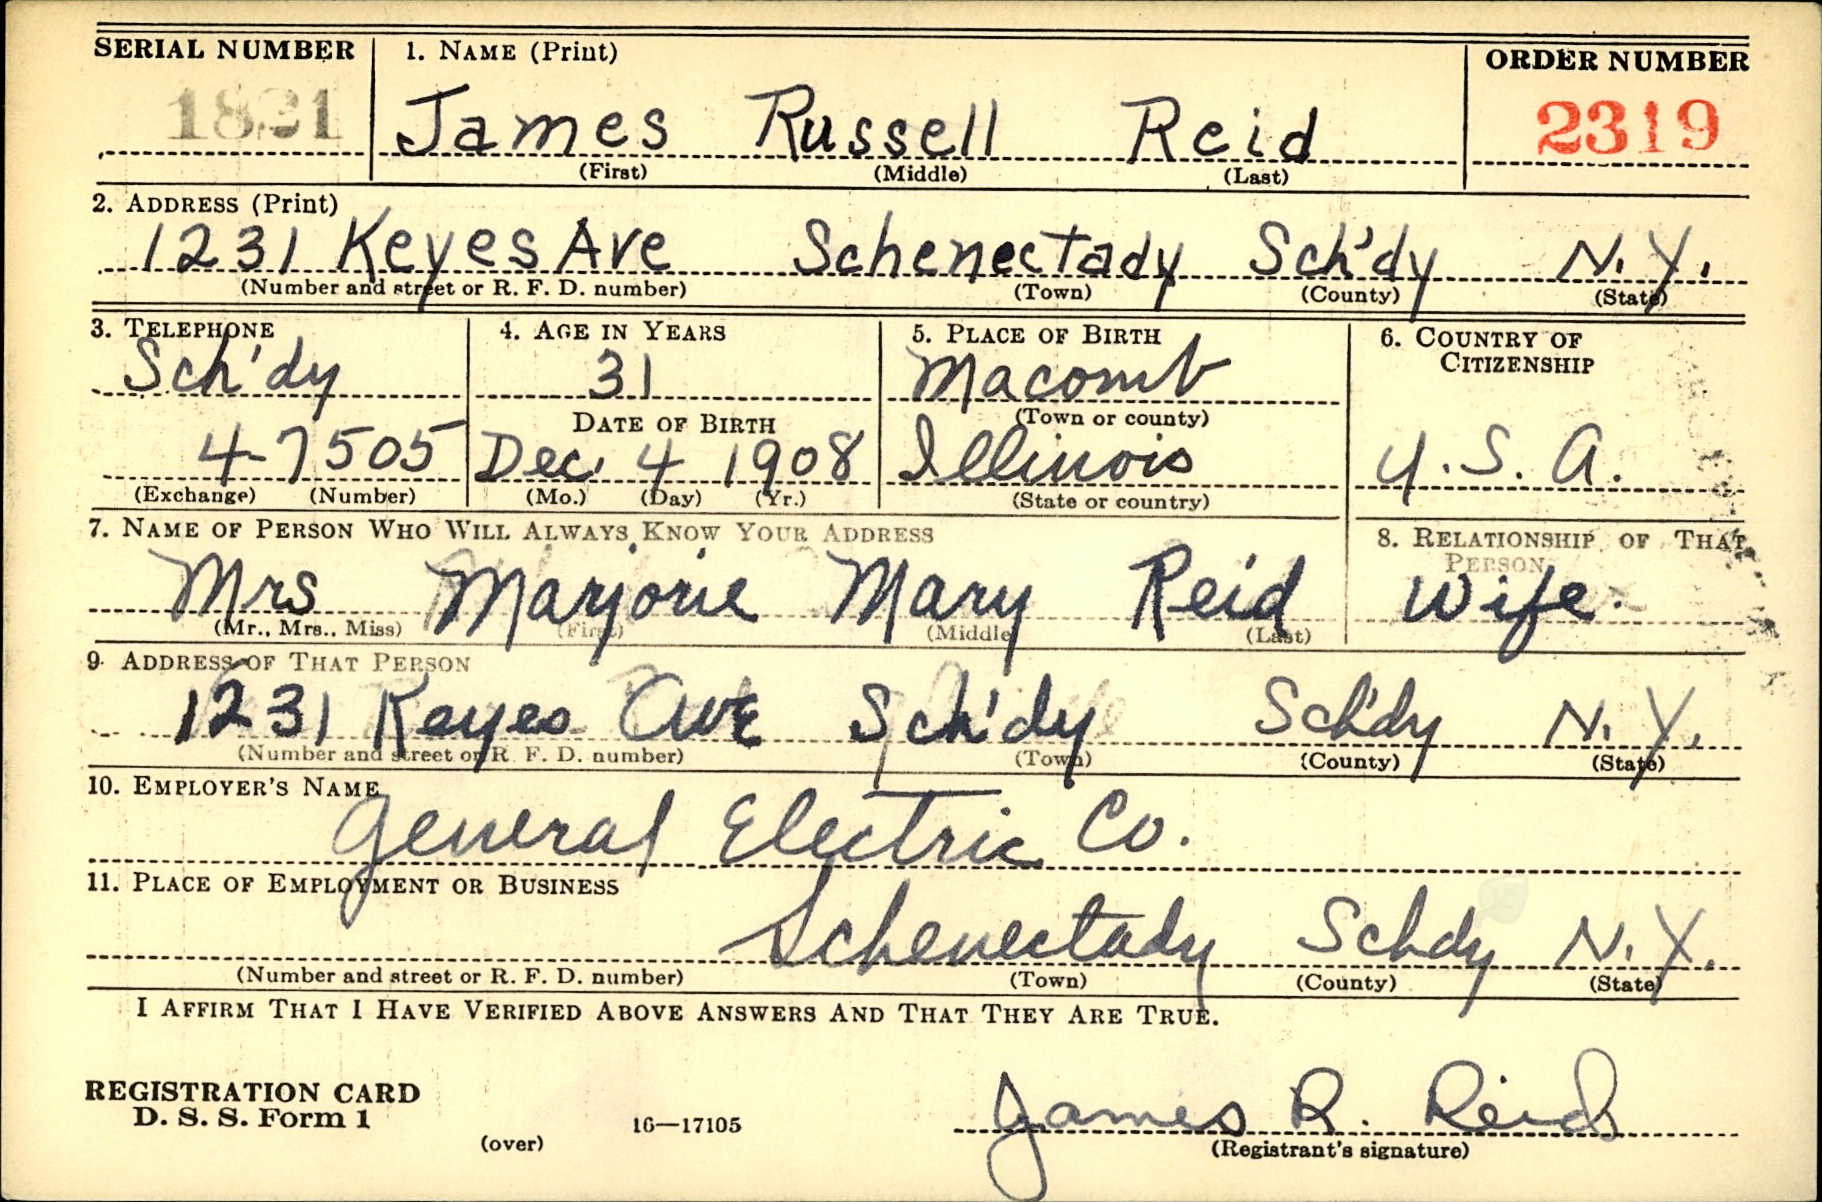 SERIAL NUMBER 1. NAME (Print) ORDER NUMBER
James Russell Reid 2319
(First) (Middle) (Last)
2. ADDRESS (Print)
1231 Keyes Ave Schenectady Sch'dy N.Y.
(Number and street or R. F. D. number) (Town) (County) (State)
3. TELEPHONE 4. AGE IN YEARS 5. PLACE OF BIRTH 6. COUNTRY OF CITIZENSHIP
Sch'dy 31 Macomb
DATE OF BIRTH (Town or county)
4-7505 Dec. 4 1908 Illinois U.S.A.
(Exchange) (Number) (Mo.) (Day) (Yr.) (State or country)
7. NAME OF PERSON WHO WILL ALWAYS KNOW YOUR ADDRESS 8. RELATIONSHIP OF THAT PERSON
Mrs Marjorie Mary Reid Wife.
(Mr., Mrs., Miss) (First) (Middle) (Last)
9. ADDRESS OF THAT PERSON
1231 Keyes Ave Sch'dy Sch'dy N.Y.
(Number and street or R. F. D. number) (Town) (County) (State)
10. EMPLOYER'S NAME
General Electric Co.
11. PLACE OF EMPLOYMENT OR BUSINESS
Schenectady Schdy N.Y.
(Number and street or R. F. D. number) (Town) (County) (State)
I AFFIRM THAT I HAVE VERIFIED ABOVE ANSWERS AND THAT THEY ARE TRUE.
REGISTRATION CARD
D. S. S. Form 1
(over) 16—17105
James R. Reid
(Registrant's signature)